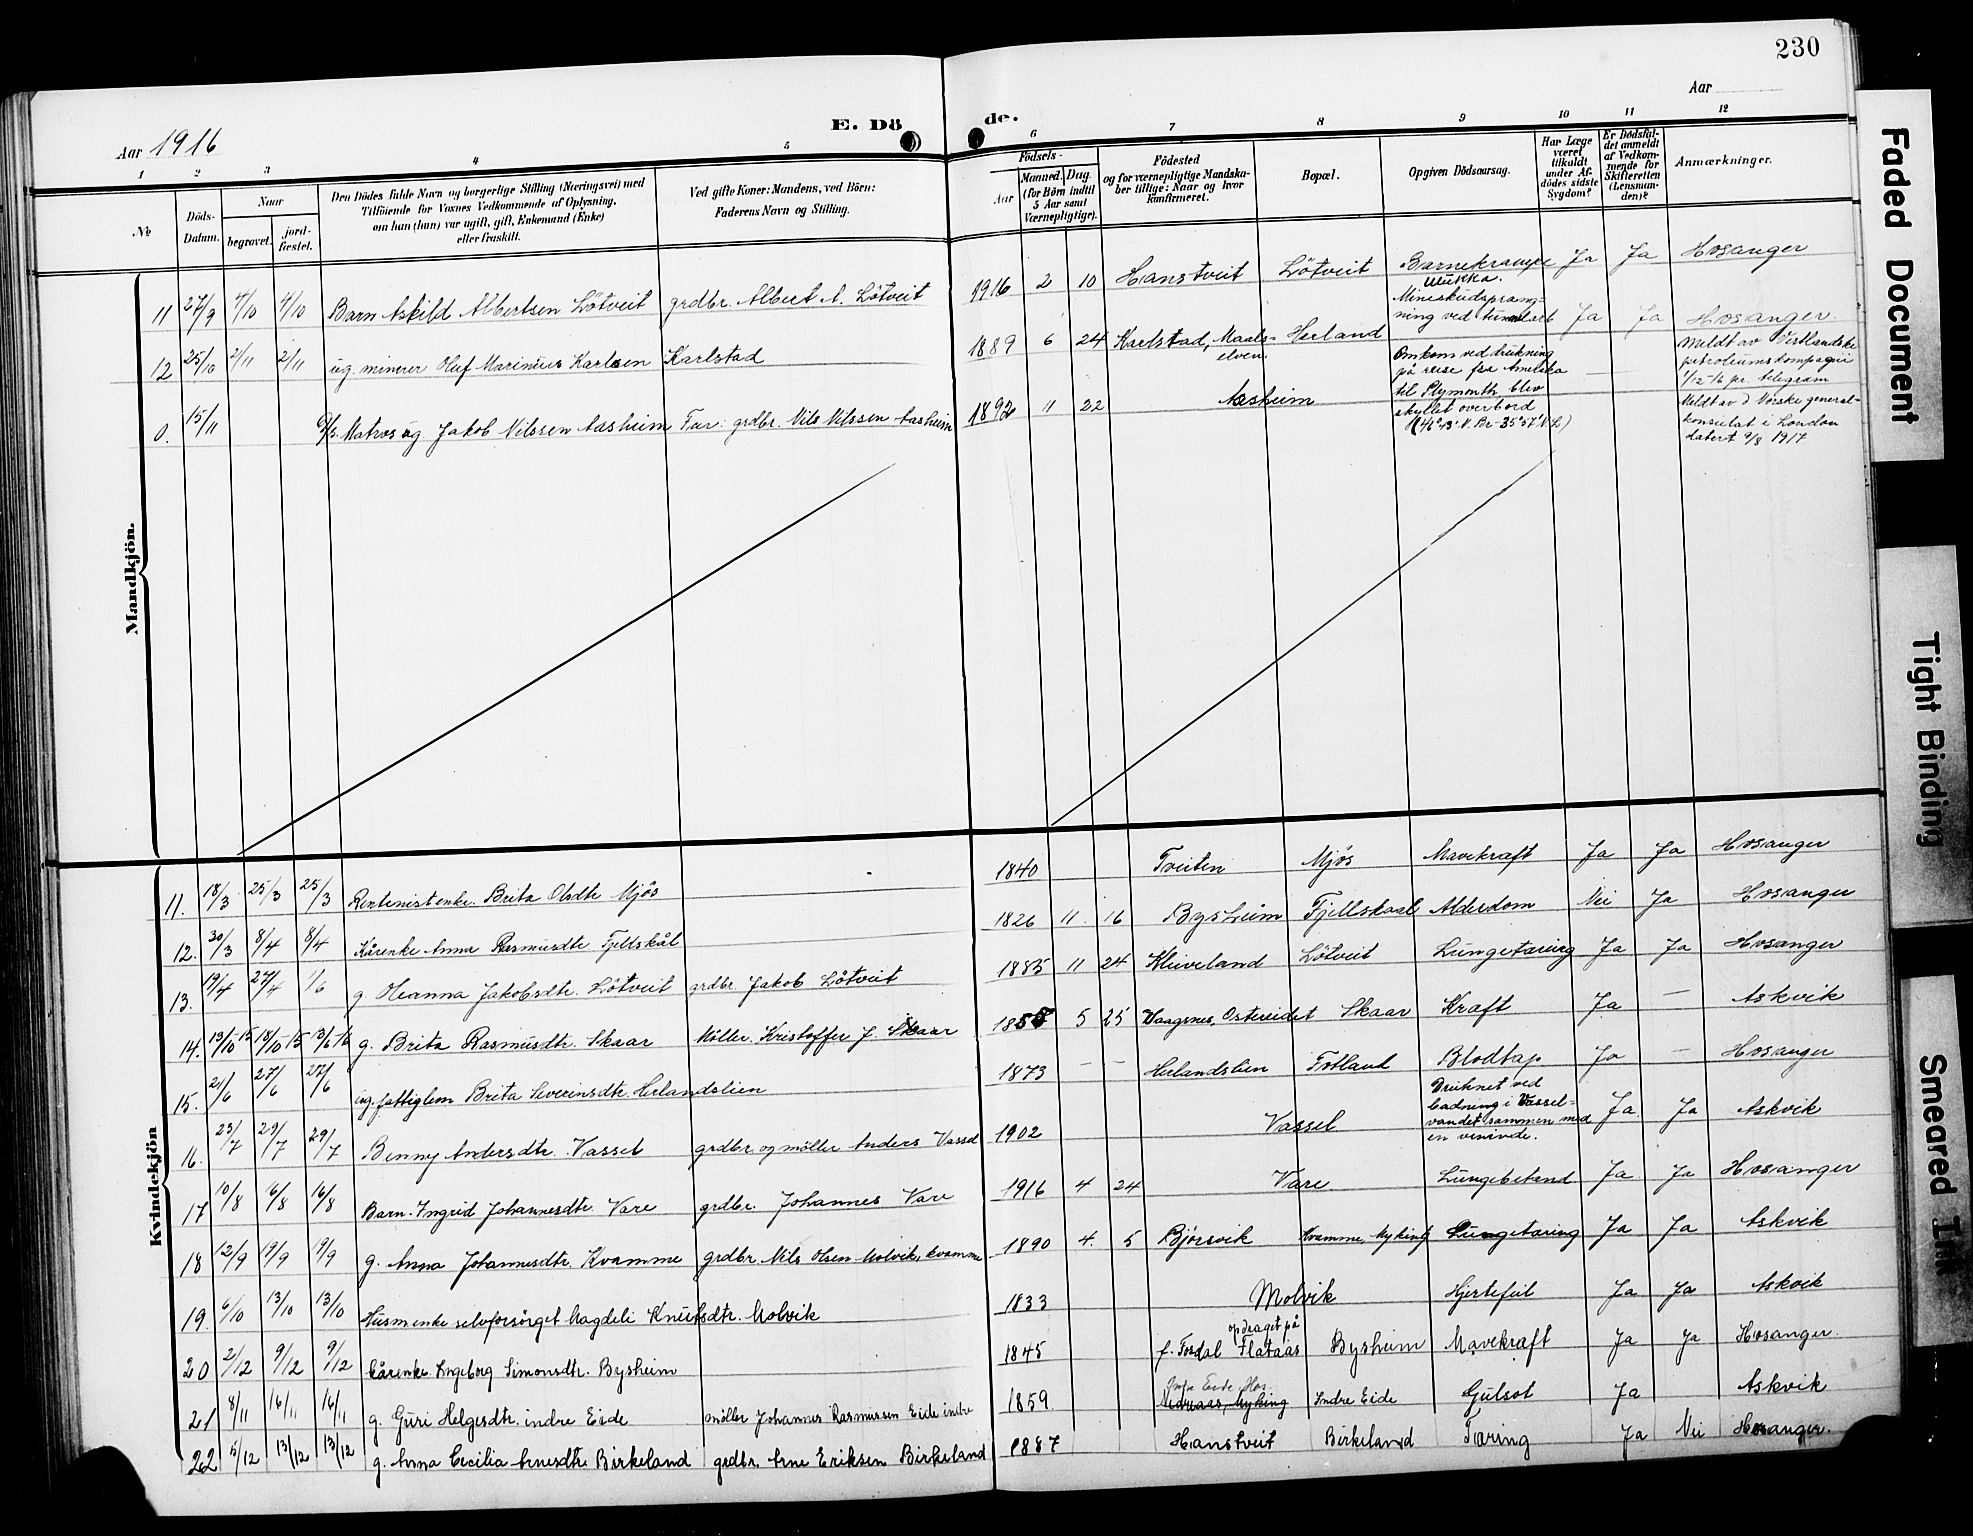 230
Aar
E. Döde.
Aar 1916
1 2 3 4 5 6 7 8 9 10 11 12
No
Döds-Datum.
Naar
begravet.
jord-fæstet.
Den Dödes fulde Navn og borgerlige Stilling (Næringsvei) med
Tilföiende for Voxnes Vedkommende af Oplysning,
om han (hun) var ugift, gift, Enkemand (Enke)
eller fraskilt.
Ved gifte Koner: Mandens, ved Börn:
Faderens Navn og Stilling.
Födsels-
Aar
Maaned. Dag.
(for Börn indtil
5 Aar samt
Værnepligtige).
Födested
og for værnepligtige Mandska-
ber tillige: Naar og hvor
konfirmeret.
Bopæl.
Opgiven Dödsaarsag.
Har Læge
været
tilkaldt
under Af-
dödes sidste
Sygdom?
Er Dödsfal-
det anmeldt
af Vedkom-
mende for
Skifteretten
(Lensman-
den)?
Anmærkninger.
Mandkjön.
11 27/9 4/10 4/10 Barn Askild Albertsen Lötveit grdbr. Albert A. Lötveit 1916 2 10 Hanstveit Lötveit Barnekrampe Ja Ja Hosanger
12 25/10 2/11 2/11 ug. minerer Oluf Marinius Karlsen Karlstad 1889 6 24 Karlstad, Maals-
elven. Herland Mineskudspræng-
ning ved tunelarb Ja Ja Hosanger.
0. 15/11 Matros ug. Jakob Nilssen Aasheim Far: grdbr. Nils Nilssen Aasheim 1892 11 22 Aasheim
Omkom ved drukning
på reise fra Amerika
til Plymouth blev
skyllet overbord
Meldt av Vestlandske
petroliumskompagni
1/12-16 pr. telegram
Meldt av d Norske general-
konsulat i London
datert 9/8 1917
Kvindekjön
11. 18/3 25/3 25/3 Rentenistenke. Brita Olsdtr Mjös 1840 Tveiten Mjös Mavekræft Ja Ja Hosanger
12. 30/3 8/4 8/4 Kårenke Anna Rasmusdtr Fjellskål 1826 11 16 Bysheim Fjellskaal Alderdom Nei Ja Hosanger
13. 19/4 27/4 1/6 g. Oleanna Jakobsdtr. Lötveit grdbr. Jakob Lötveit 1885 11 24 Kleiveland Lötveit Lungetæring Ja Ja Hosanger
14. 13/10 15 18/10-15 13/6 16 g. Brita Rasmusdtr. Skaar Möller. Kristoffer J. Skaar 1858 5 25 Vaagenes, Ostereidet Skaar Kræft Ja — Askvik
15. 21/6 27/6 27/6 ug. fattiglem Brita Severinsdtr. Herlandslien 1873 — — Herlandslien Totland Blodtap Ja — Hosanger
16. 23/7 29/7 29/7 Benny Andersdtr. Vassel grdbr. og möller Anders Vassel 1902 Vassel Druknet ved
badning i Vassel-
vandet sammen med
en veninde. Ja Ja Askvik
17 10/8 16/8 16/8 Barn. Ingrid Johannesdtr. Vare grdbr. Johannes Vare 1916 4 24 Vare Lungebetænd Ja Ja Hosanger
18 12/9 19/9 19/9 g. Anna Johannesdtr. Kvamme grdbr. Nils Olsen Molvik, Kvamme 1890 4. 5 Bjørsvik Kvamme, Myking Lungetæring Ja Ja Askvik
19. 6/10 13/10 13/10 Husmenke selvforsörget Magdeli Knutsdtr. Molvik 1833 Molvik Hjertefeil Ja Ja Askvik
20 2/12 9/12 9/12 kårenke. Ingeborg Simonsdtr. Bysheim 1845 f. Fosdal opdraget på Flataas Bysheim Mavekræft Ja Ja Hosanger.
21 8/11 16/11 16/11 g. Guri Helgesdtr. indre Eide möller Johannes Rasmussen Eide indre 1859 Indre Eide Hos. Nedreaas, Myking Indre Eide Gulsot Ja Askvik
22 5/12 13/12 13/12 g. Anna Cecilia Arnesdtr Birkeland grdbr. Arne Eriksen Birkeland 1887 Hanstveit Birkeland Tæring Ja Nei Hosanger.
Faded Document
Tight Binding
Smeared Ink